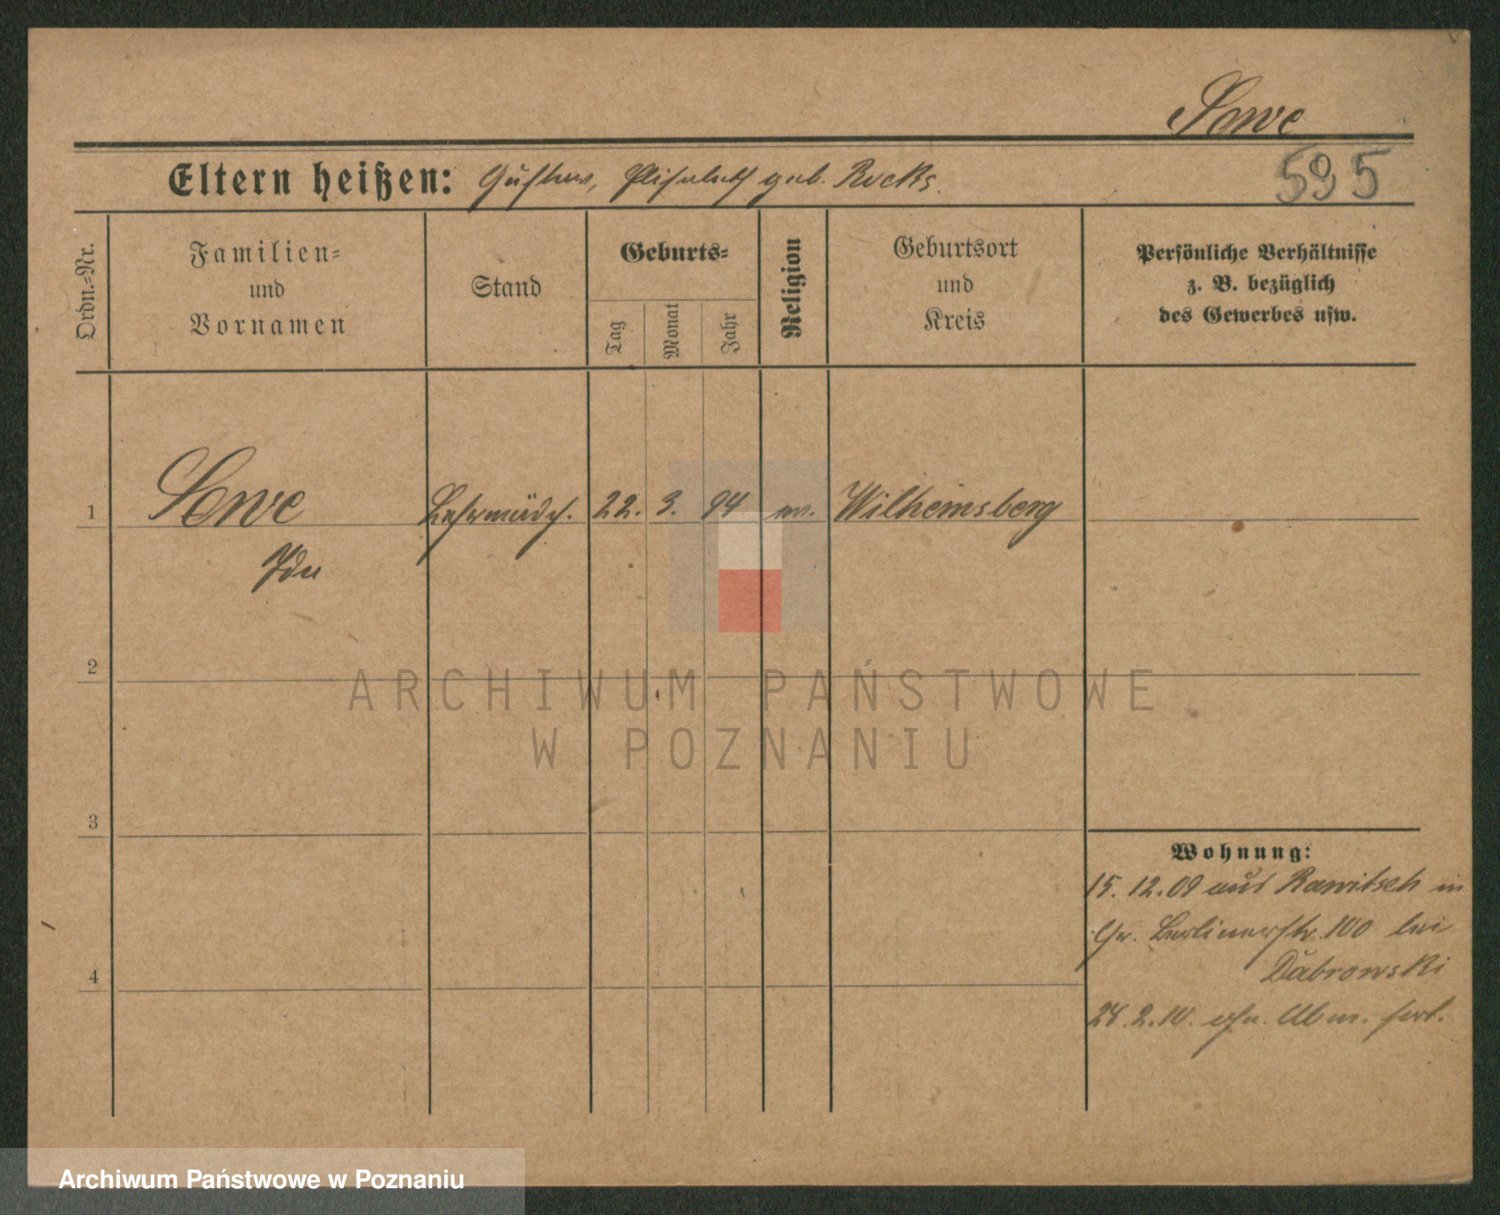 Lowe
595
Eltern heißen: Gustav, Elisabeth geb. Rocks.
Ordn.-Nr.
Familien-
und
Vornamen
Stand
Geburts-
Tag
Monat
Jahr
Religion
Geburtsort
und
Kreis
Persönliche Verhältnisse
z. B. bezüglich
des Gewerbes usw.
1 Lowe Lehrmädch. 22. 3. 94 ev. Wilhelmsberg
Ida
2
3
4
Wohnung:
15. 12. 09 aus Rawitsch in
Gr. Berlinerstr. 100 bei
Dabrowski
28. 2. 10. ohn. Abm. fort.
ARCHIWUM PAŃSTWOWE
W POZNANIU
Archiwum Państwowe w Poznaniu